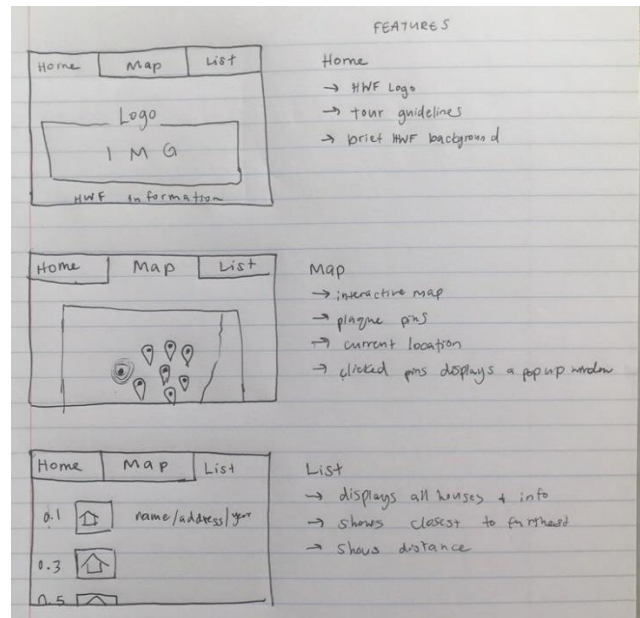 FEATURES
Home Map List
Logo
IMG
HWF information
Home
→ HWF Logo
→ tour guidelines
→ brief HWF background
Home Map List
Map
→ interactive map
→ plaque pins
→ current location
→ clicked pins displays a pop up window
Home Map List
0.1 name/address/year
0.3
0.5
List
→ displays all houses + info
→ shows closest to furthest
→ shows distance